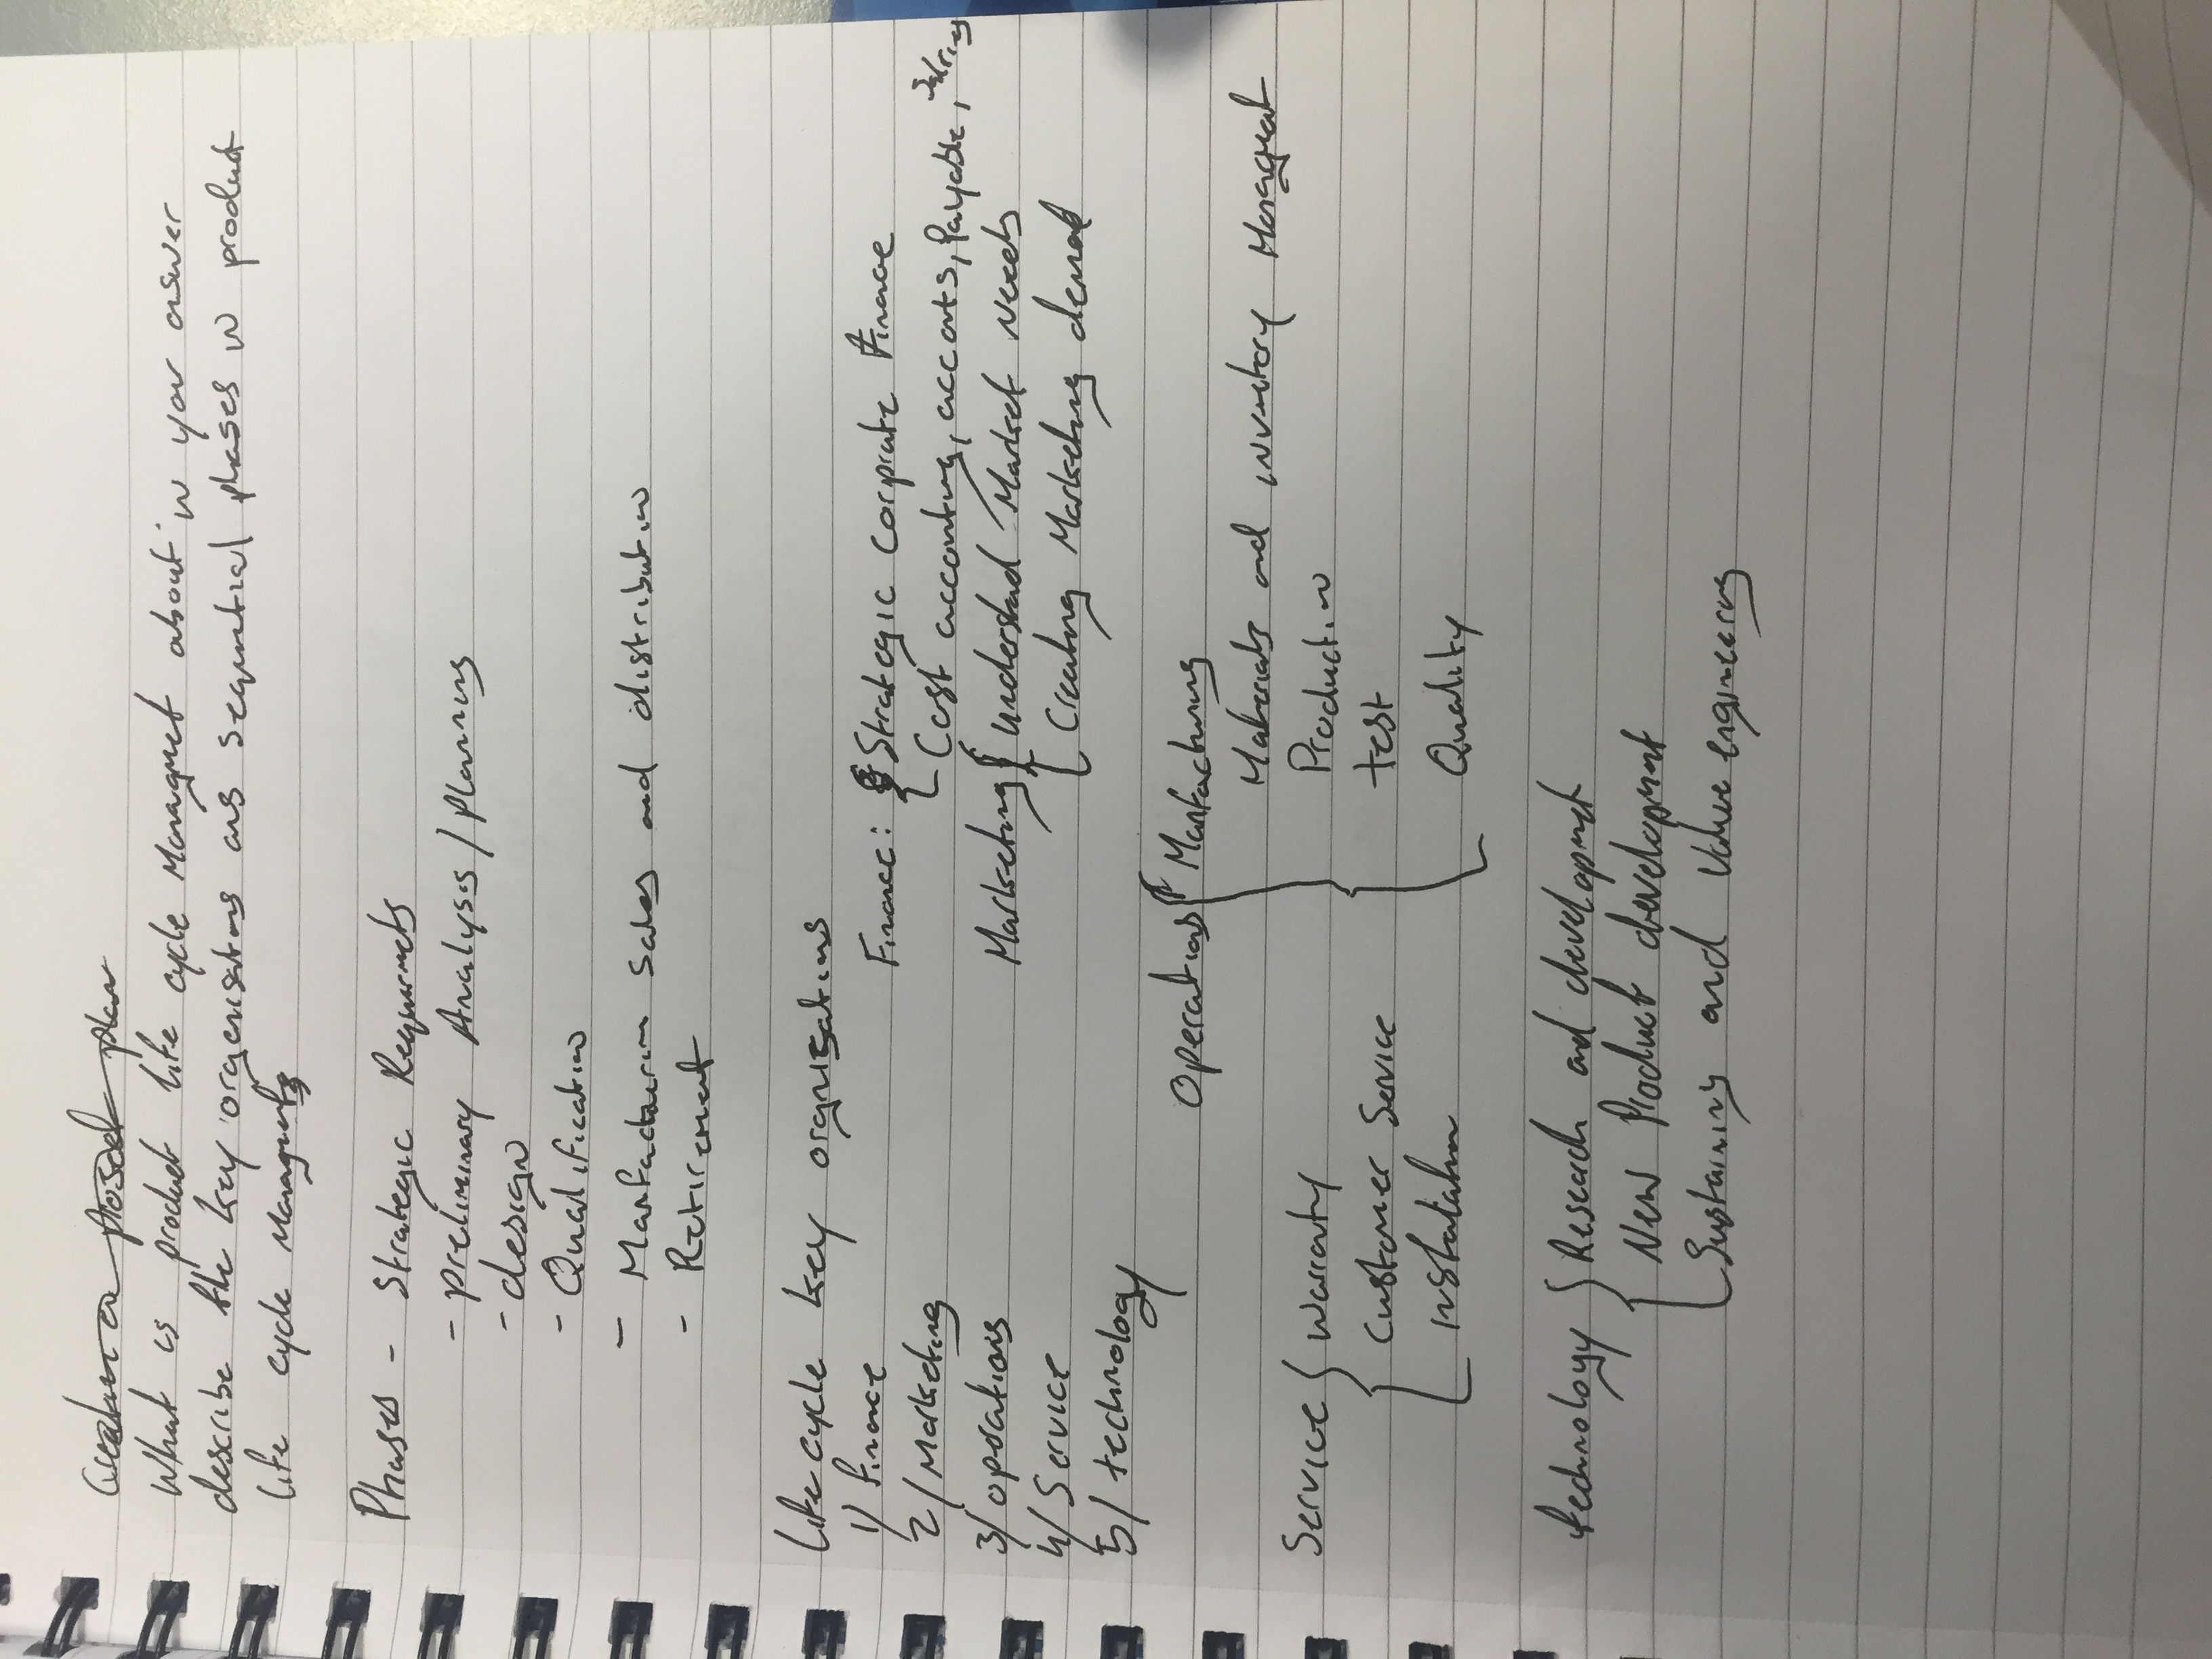 What is product life cycle Managmet about in your answer
describe the key organisations and sequential phases in product
life cycle Managment
Phases - Strategic Requirmets
- preliminary Analysis / planning
- design
- Qualification
- Manfacturin Sales and distribution
- Retirement
Life cycle key orgnisations
1) finance
2/ Marketing
3/ operations
4/ Service
5/ technology
Finance: Strategic Corprate Finance
Cost accounting, accounts, Payable, Salries
Marketing Understand Market Needs
Creating Marketing demand
Operations Manfacturing
Materials and inventory Managment
Production
test
Quality
Service Warranty
Customer Service
instalation
technology Research and development
New Product development
Sustaining and Value engineering